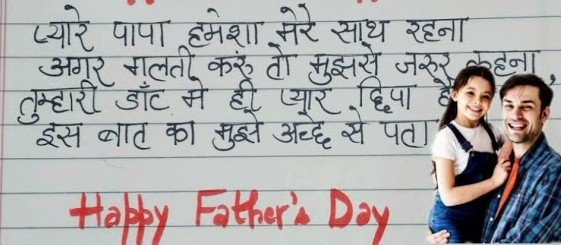 प्यारे पापा हमेशा मेरे साथ रहना
अगर गलती करूं तो मुझसे जरूर कहना,
तुम्हारी डाँट मे ही प्यार छिपा है
इस बात का मुझे अच्छे से पता
Happy Father's Day